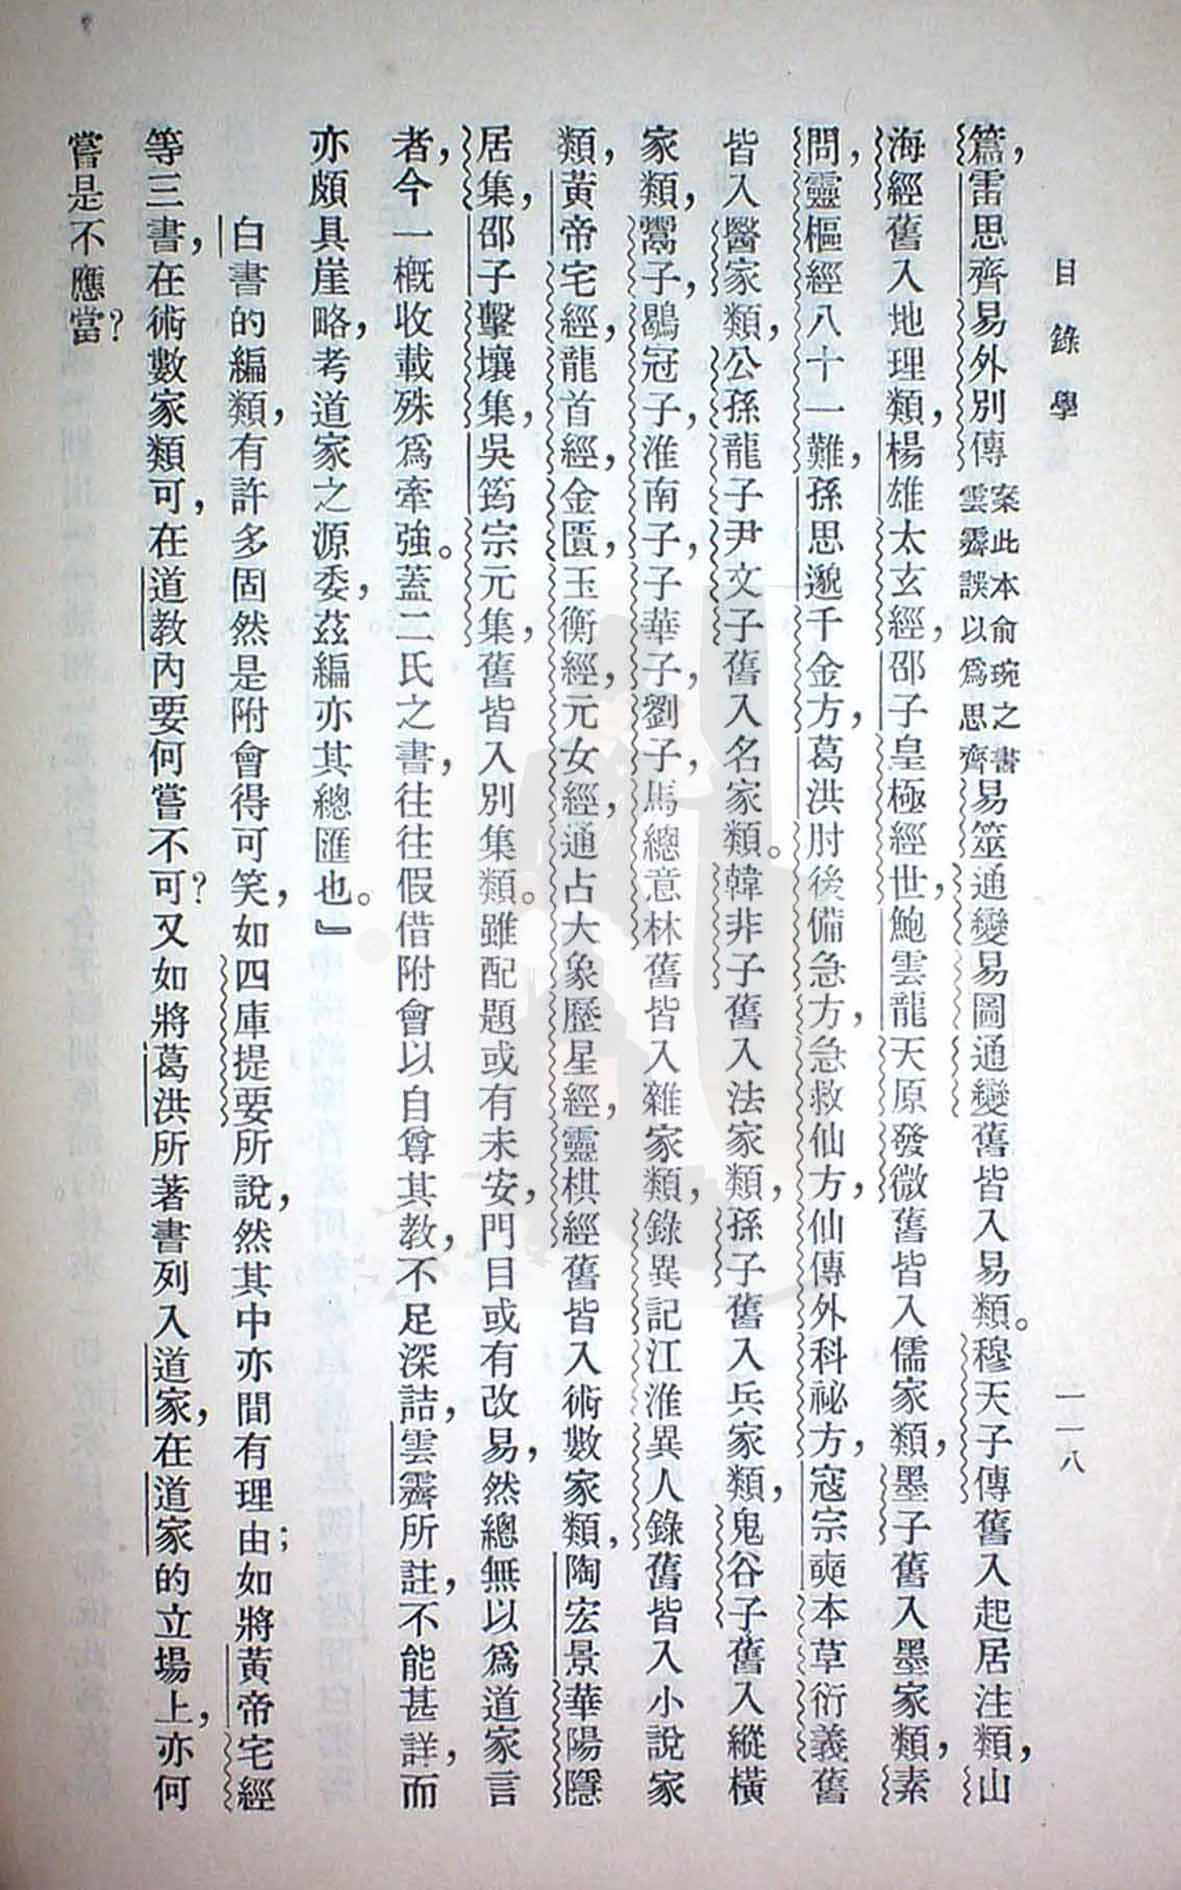 目錄學
一一八
篇，雷思齊易外別傳案此本俞琬之書雲霽誤以爲思齊易筮通變易圖通變舊皆入易類。穆天子傳舊入起居注類，山
海經舊入地理類，楊雄太玄經，邵子皇極經世，鮑雲龍天原發微舊皆入儒家類，墨子舊入墨家類，素
問，靈樞經八十一難，孫思邈千金方，葛洪肘後備急方，急救仙方，仙傳外科祕方，寇宗奭本草衍義舊
皆入醫家類，公孫龍子尹文子舊入名家類。韓非子舊入法家類，孫子舊入兵家類，鬼谷子舊入縱橫
家類，鬻子，鶡冠子，淮南子，子華子，劉子，馬總意林舊皆入雜家類，錄異記江淮異人錄舊皆入小說家
類，黃帝宅經，龍首經，金匱玉衡經，元女經，通占大象歷星經，靈棋經舊皆入術數家類，陶宏景華陽隱
居集，邵子擊壤集，吳筠宗元集，舊皆入別集類。雖配題或有未安，門目或有改易，然總無以爲道家言
者，今一槪收載殊爲牽強。蓋二氏之書，往往假借附會以自尊其教，不足深詰，雲霽所註，不能甚詳，而
亦頗具崖略，考道家之源委，茲編亦其總匯也。』
白書的編類，有許多固然是附會得可笑，如四庫提要所說，然其中亦間有理由；如將黃帝宅經
等三書，在術數家類可，在道教內要何嘗不可？又如將葛洪所著書列入道家，在道家的立場上，亦何
嘗是不應當？